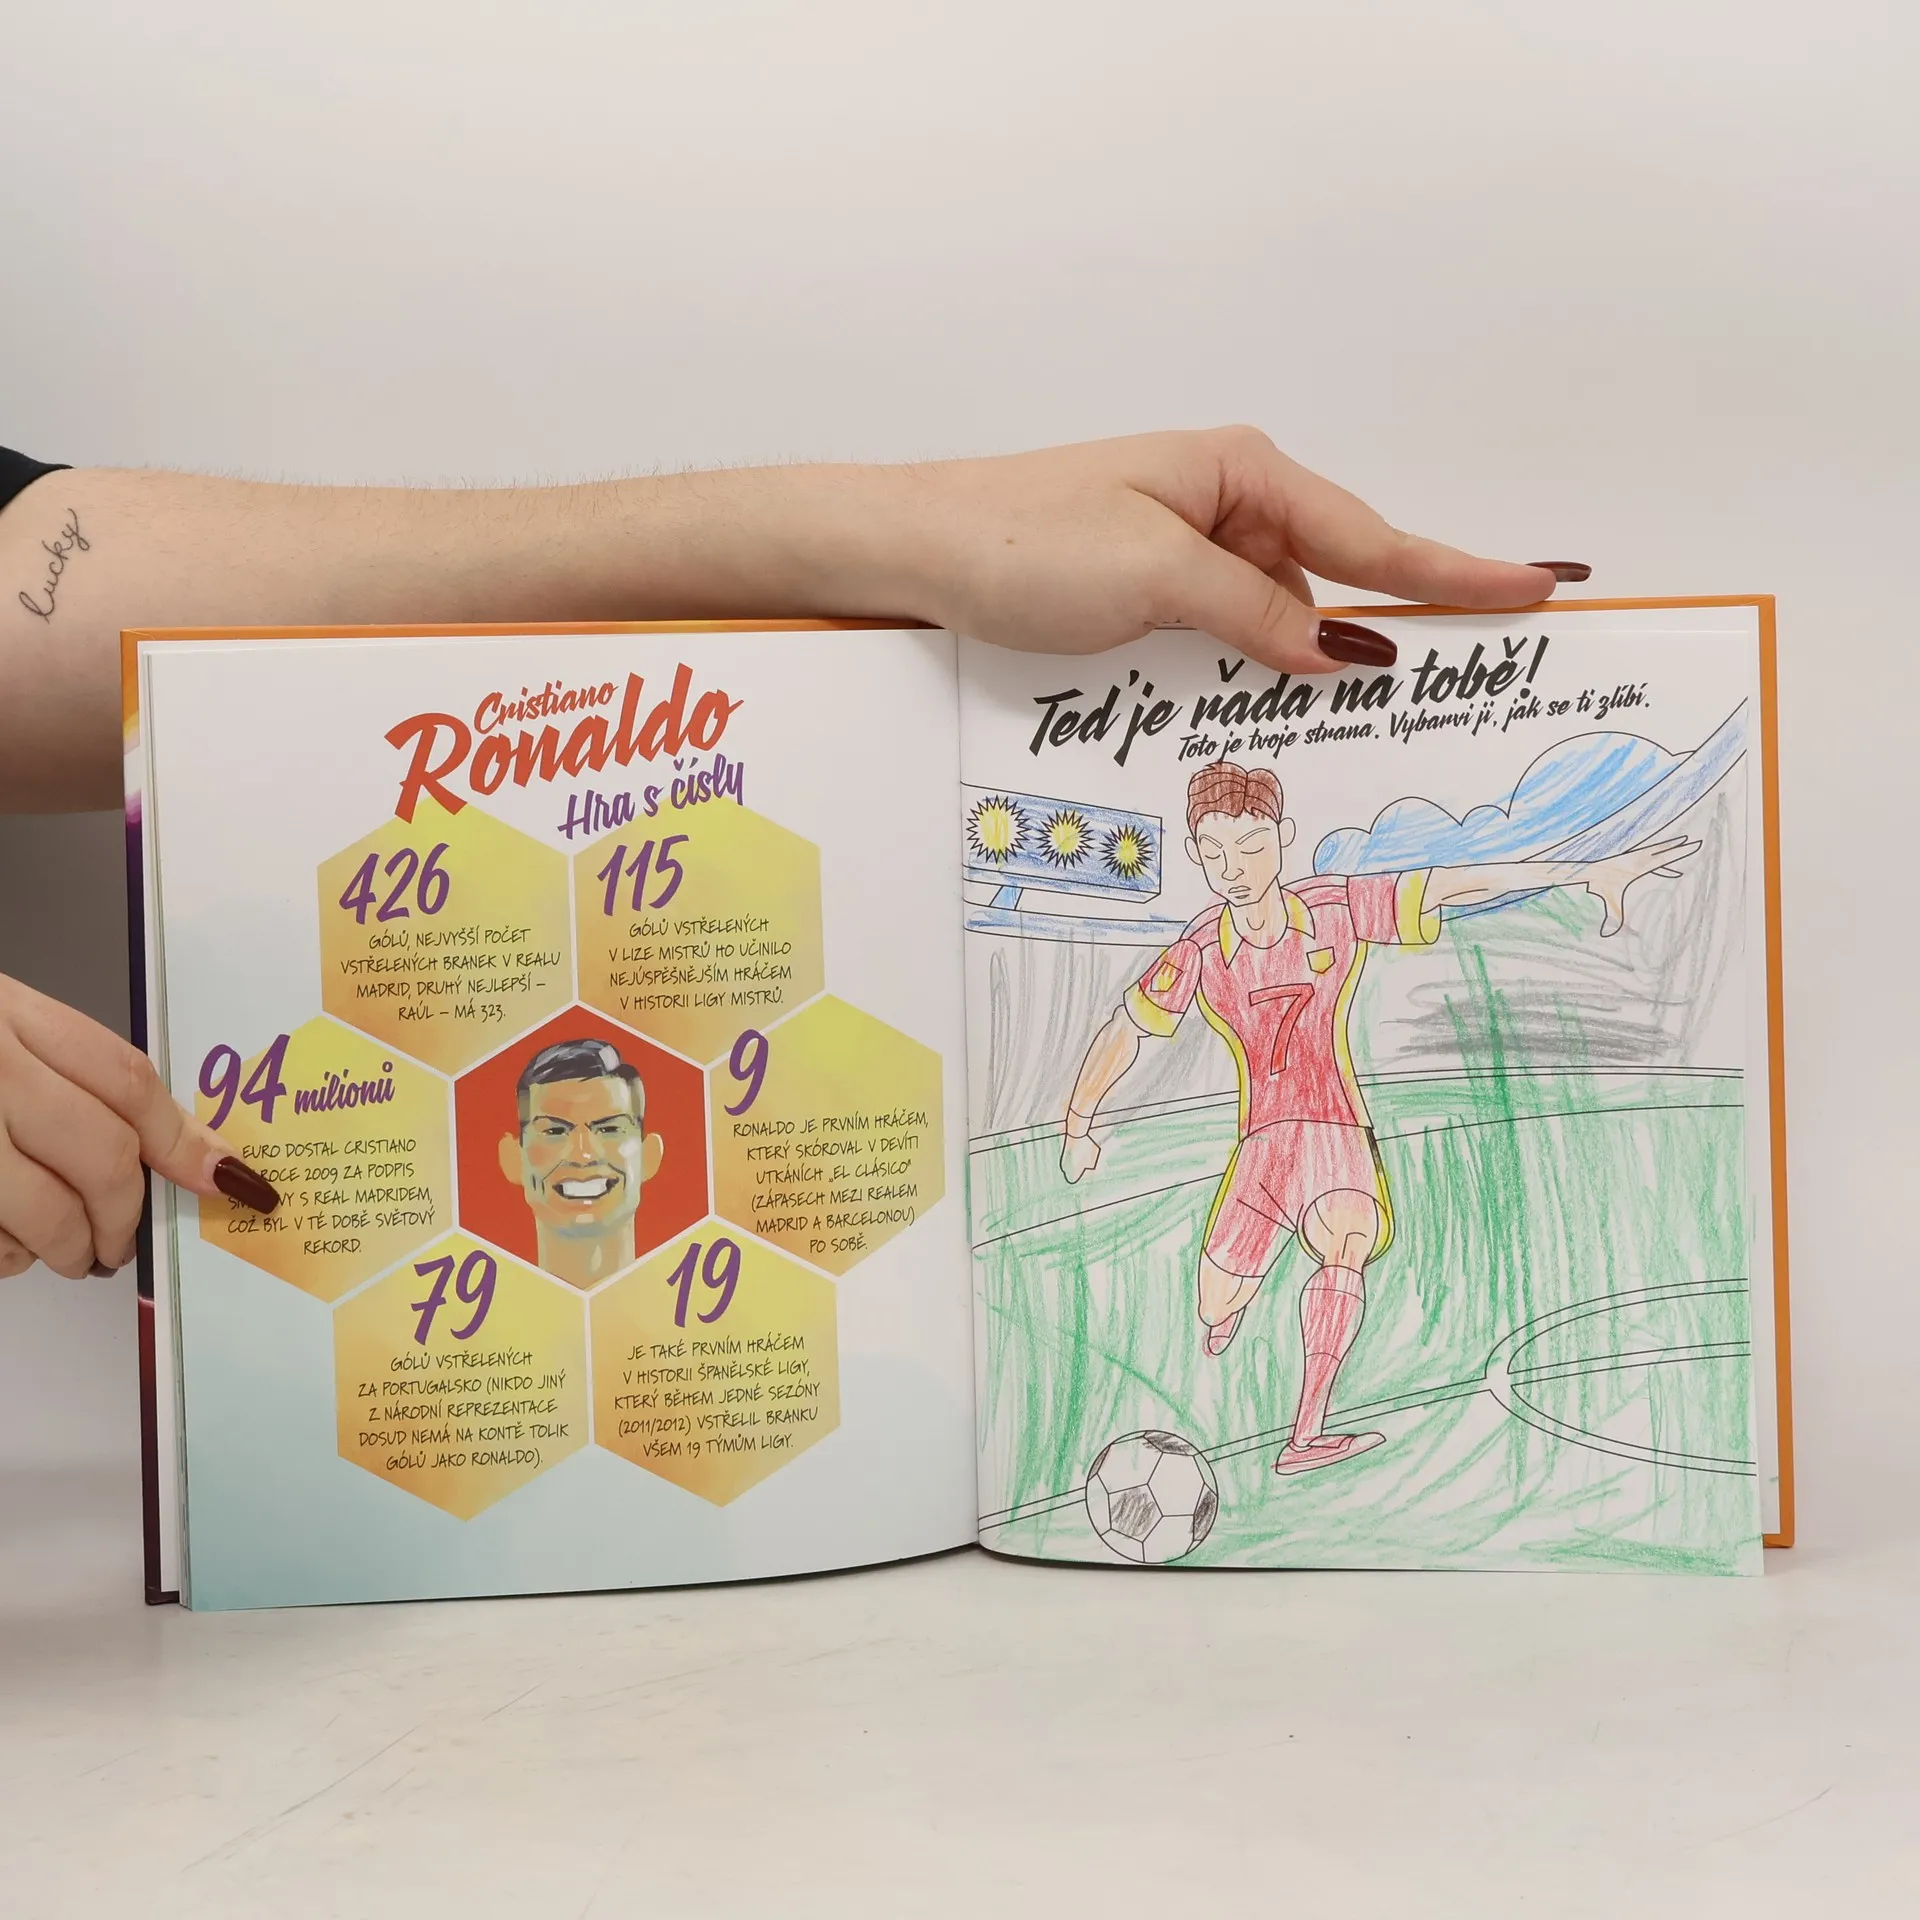 lucky
Cristiano
Ronaldo
Hra s čísly
426
GÓLŮ, NEJVYŠŠÍ POČET
VSTŘELENÝCH BRANEK V REALU
MADRID, DRUHÝ NEJLEPŠÍ –
RAÚL – MÁ 323.
115
GÓLŮ VSTŘELENÝCH
V LIZE MISTRŮ HO UČINILO
NEJÚSPĚŠNĚJŠÍM HRÁČEM
V HISTORII LIGY MISTRŮ.
94 milionů
EURO DOSTAL CRISTIANO
ROCE 2009 ZA PODPIS
S REAL MADRIDEM,
COŽ BYL V TÉ DOBĚ SVĚTOVÝ
REKORD.
9
RONALDO JE PRVNÍM HRÁČEM,
KTERÝ SKÓROVAL V DEVÍTI
UTKÁNÍCH „EL CLÁSICO"
(ZÁPASECH MEZI REALEM
MADRID A BARCELONOU)
PO SOBĚ.
79
GÓLŮ VSTŘELENÝCH
ZA PORTUGALSKO (NIKDO JINÝ
Z NÁRODNÍ REPREZENTACE
DOSUD NEMÁ NA KONTĚ TOLIK
GÓLŮ JAKO RONALDO).
19
JE TAKÉ PRVNÍM HRÁČEM
V HISTORII ŠPANĚLSKÉ LIGY,
KTERÝ BĚHEM JEDNÉ SEZÓNY
(2011/2012) VSTŘELIL BRANKU
VŠEM 19 TÝMŮM LIGY.
Teď je řada na tobě!
Toto je tvoje strana. Vybarvi ji, jak se ti zlíbí.
7